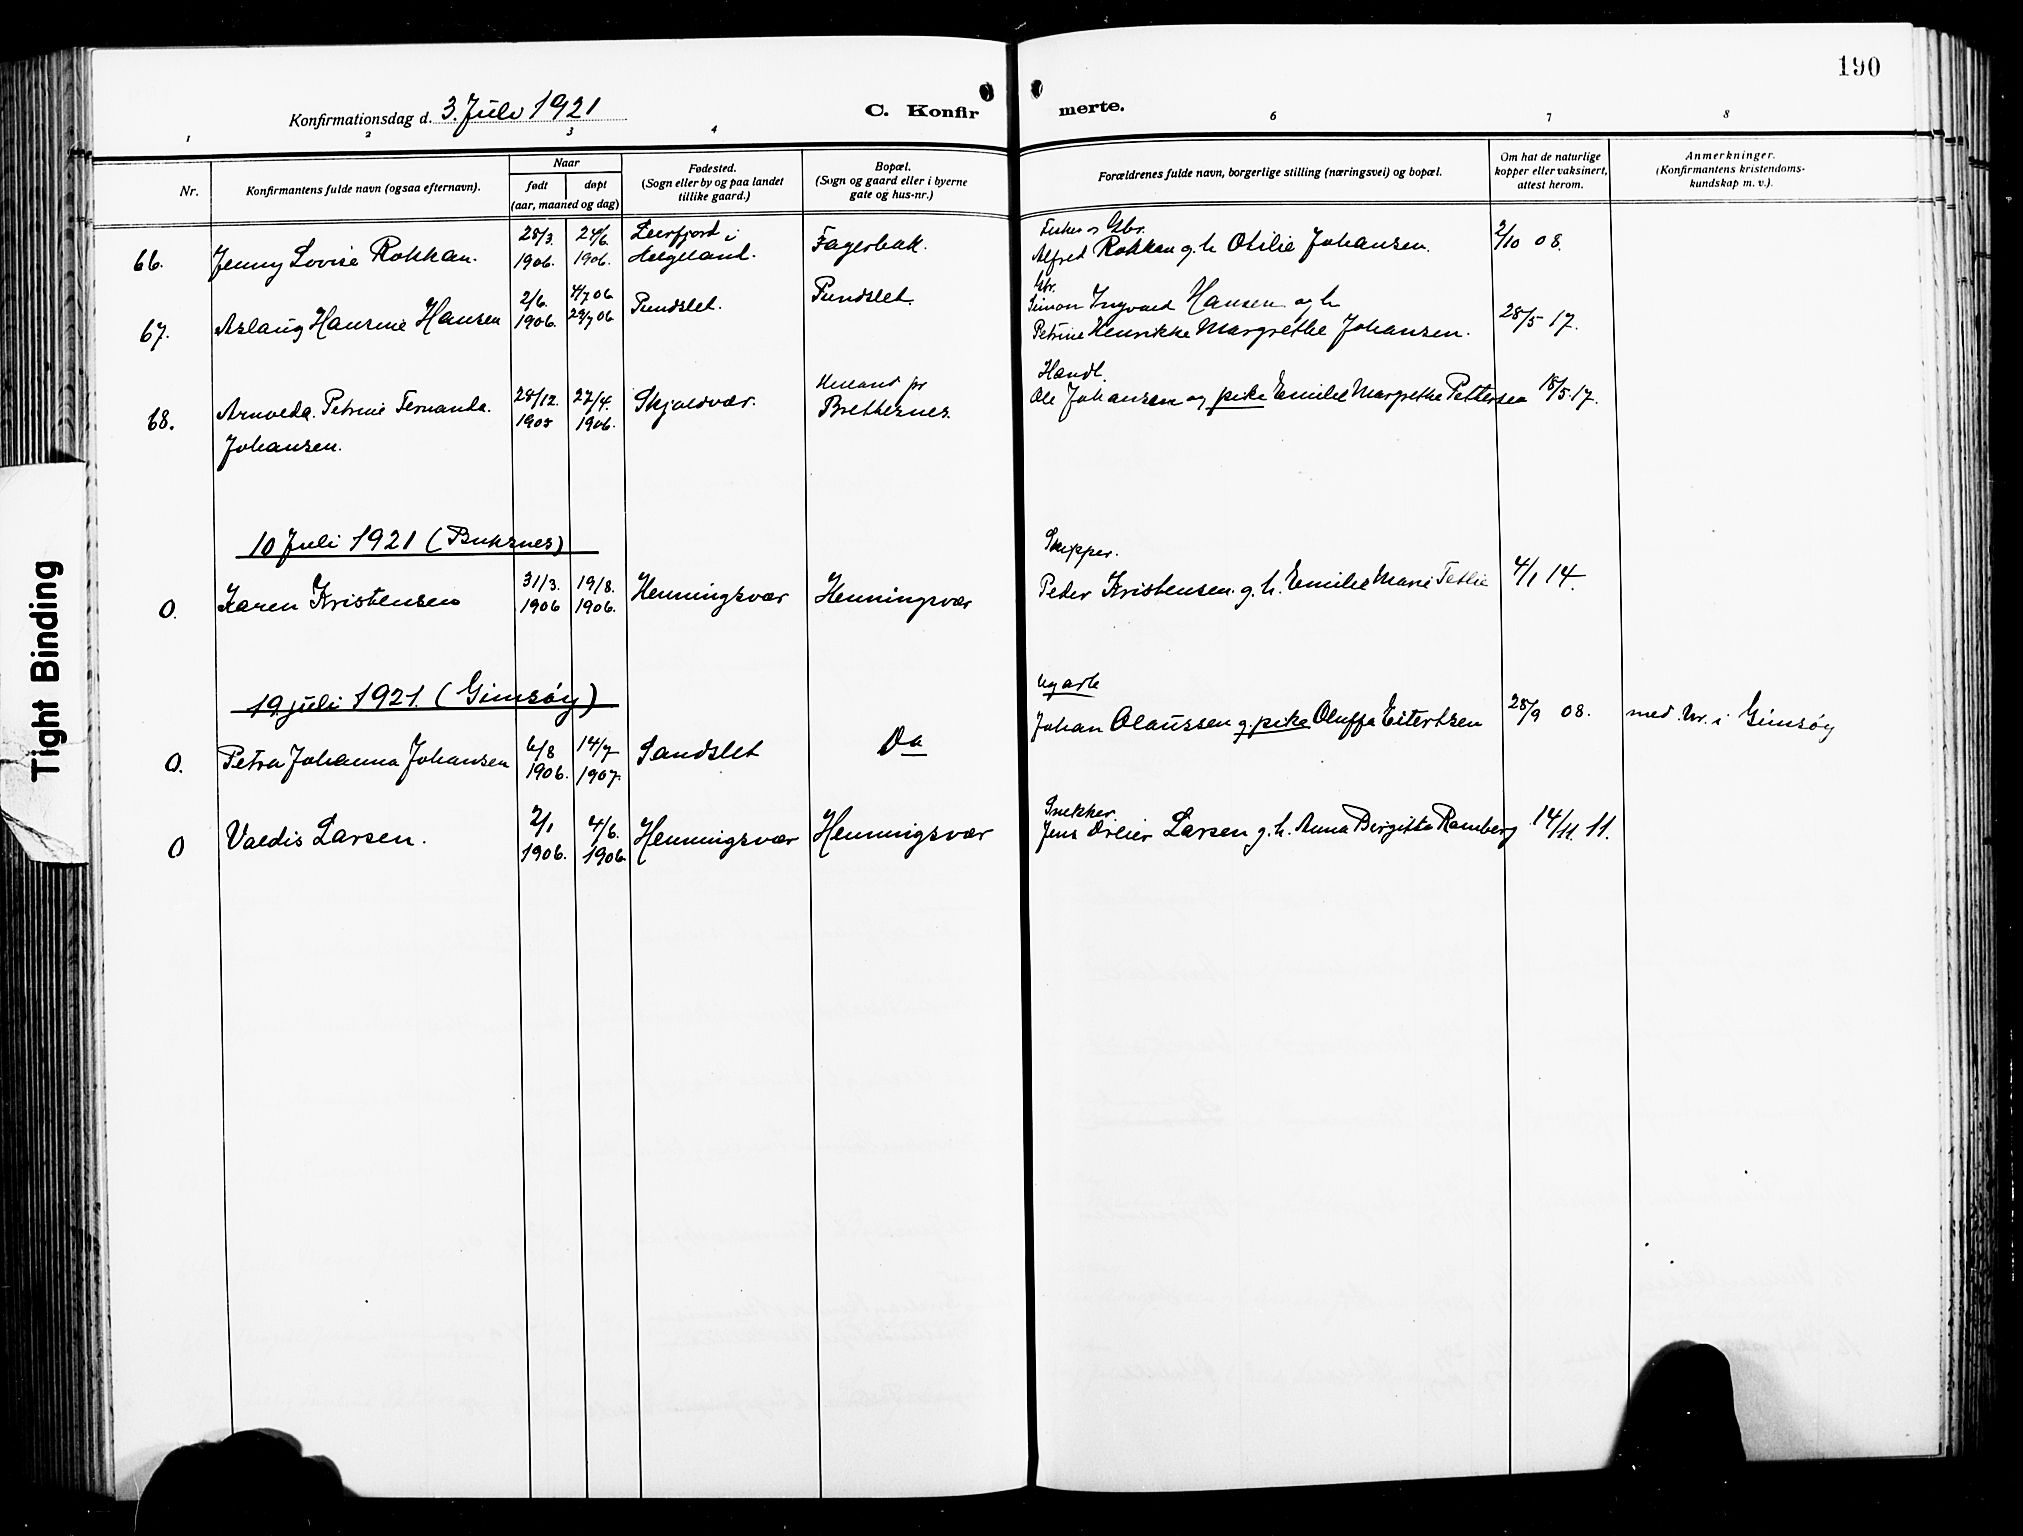 190
Konfirmationsdag d. 3. Juli 1921
C. Konfir
merte.
1 2 3 4 6 7 8
Nr.
Konfirmantens fulde navn (ogsaa efternavn).
Naar
født døpt
(aar, maaned og dag)
Fødested.
(Sogn eller by og paa landet
tillike gaard.)
Bopæl.
(Sogn og gaard eller i byerne
gate og hus-nr.)
Forældrenes fulde navn, borgerlige stilling (næringsvei) og bopæl.
Om hat de naturlige
kopper eller vaksinert,
attest herom.
Anmerkninger.
(Konfirmantens kristendoms-
kundskap m. v.).
66. Jenny Lovise Rokkan. 28/3. 1906. 24/6. 1906. Leirfjord i Helgeland. Fagerbak.
Fisker og Gbr.
Alfred Rokkan g. h. Otilie Johansen. 2/10 08.
67. Aslaug Hansine Hansen 2/6. 1906. 4/7 06 29/7 06 Pundslet. Pundslet.
Gbr.
Simon Ingvard Hansen og h.
Petrine Henrikke Margrethe Johansen. 28/5 17.
68. Arnolda. Petrine Fernanda. Johansen. 28/12. 1905 22/4. 1906. Skjoldvær. Brettesnes.
Handl.
Ole Johansen og pike Emilie Margrethe Pettersen 18/5. 17.
10 Juli 1921 (Buksnes)
0. Karen Kristensen 31/3. 1906 19/8. 1906. Henningsvær Henningsvær
Skipper.
Peder Kristensen. g. h. Emilie Marie Tetlie 4/1 14.
19. juli 1921. (Gimsøy)
0. Petra Johanna Johansen 6/8 1906. 14/7 1907. Sandslet Do
Ug arb
Johan Olaussen og pike Oluffa Eilertsen 28/9 08. med. Nr. i Gimsøy
0 Valdis Larsen. 2/1 1906. 4/6. 1906. Henningsvær Henningsvær
Snekker.
Jens Dreier Larsen g. h. Anna Birgitte Ramberg 14/11. 11.
Tight Binding